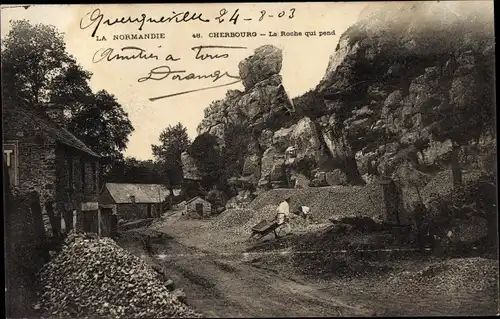 Querqueville 24-8-03
LA NORMANDIE 48. CHERBOURG - La Roche qui pend
Amitiés à tous
Dorange